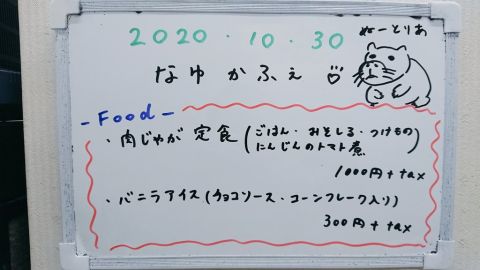 2020・10・30
ぬーとりあ
なゆかふぇ
- Food -
・肉じゃが定食(ごはん・おみそしる・つけもの
にんじんのトマト煮)
1000円+tax
・バニラアイス(チョコソース・コーンフレーク入り)
300円+tax